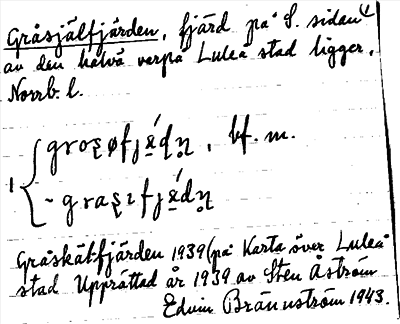 Gråsjälfjärden, fjärd på S. sidan
av den halvö varpå Luleå stad ligger,
Norrb. l.
bf. m.
Gråskätfjärden 1939 (på Karta över Luleå
stad Upprättad år 1939 av Sten Åström
Edvin Brännström 1943.